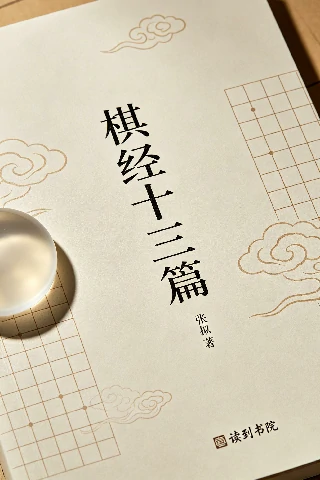 棋经十三篇
张拟 著
读到书院